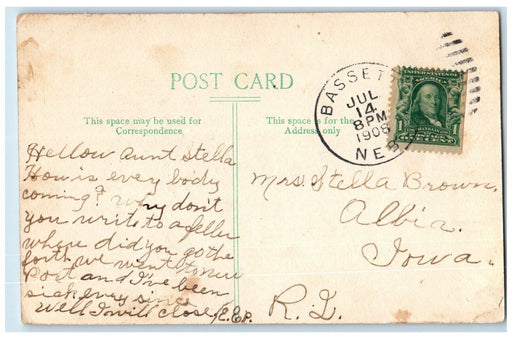 POST CARD
This space may be used for
Correspondence
This space is for the
Address only
BASSETT
JUL
14
8 PM
1908
NEBR
UNITED STATES
1
FRANKLIN
ONE CENT
Hellow aunt Stella
How is every body
coming? why don't
you write to a feller
where did you go the
forth we went to
Post and I've been
sick every since
Well I will close E.E.P.
Mrs. Stella Brown.
Albia.
Iowa.
R.I.